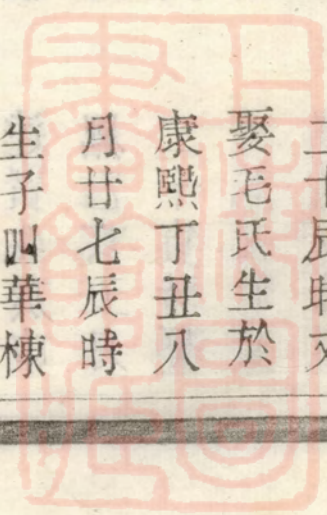 二十辰時又
娶毛氏生於
康熙丁丑八
月廿七辰時
生子四華棟